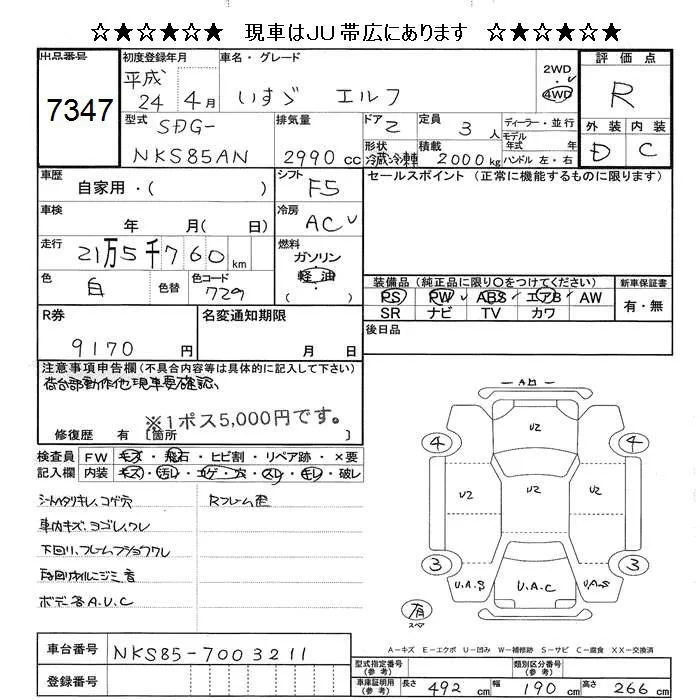 ☆★☆★☆★ 現車はJU帯広にあります ☆★☆★☆★
出品番号 7347
初度登録年月 平成 24年 4月
車名・グレード いすゞ エルフ
2WD 4WD
評価点 R
外装 D 内装 C
型式 SDG- NKS85AN
排気量 2990 cc
ドア 2
形状 冷蔵冷凍車
定員 3人
積載 2000kg
ディーラー・並行
モデル年式 年式
ハンドル 左・右
車歴 自家用・( )
シフト F5
セールスポイント(正常に機能するものに限ります)
車検 年 月( 日)
冷房 AC
走行 21万5千760km
燃料 ガソリン 軽油 ( )
色 白 色替 色コード 729
装備品(純正品に限り○をつけてください)
新車保証書 有・無
PS PW ABS エアB AW
SR ナビ TV カワ
R券 9170円
名変通知期限 月 日
後日品
注意事項申告欄(不具合内容等は具体的に記入して下さい)
荷台部動作他現車要確認
※1ポス5,000円です。
修復歴 有 〔箇所 〕
検査員記入欄
FW キズ・飛石・ヒビ割・リペア跡・×要
内装 キズ・汚レ・コゲ・穴・スレ・キレ・破レ
シートヘタリキレ、コゲ穴
Rフレーム歪
車内キズ、ヨゴレ、ワレ
下回り、フレームフショクワレ
ボデー各A.U.C
A凹
U2
④ ④
U2 U2 U2
③ ③
U.A.S U.A.C U.A.S
有 スペア
A-キズ E-エクボ U-凹み W-補修跡 S-サビ C-腐食 XX-交換済
車台番号 NKS85-7003211
登録番号
型式指定番号(参考) 類別区分番号(参考)
車庫証明用(参考) 長さ 492cm 幅 190cm 高さ 266cm